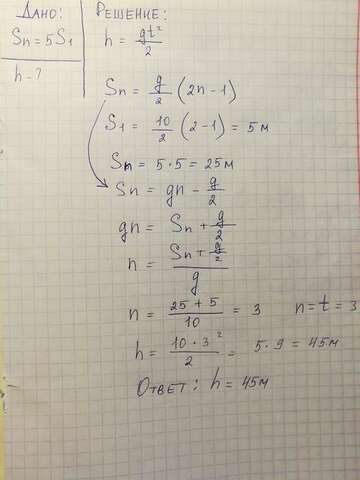 Дано:
Sn = 5S1
h - ?
Решение:
h = gt²/2
Sn = g/2 (2n - 1)
S1 = 10/2 (2 - 1) = 5 м
Sn = 5·5 = 25 м
Sn = gn - g/2
gn = Sn + g/2
n = (Sn + g/2)/g
n = (25 + 5)/10 = 3   n = t = 3
h = (10·3²)/2 = 5·9 = 45 м
Ответ: h = 45 м